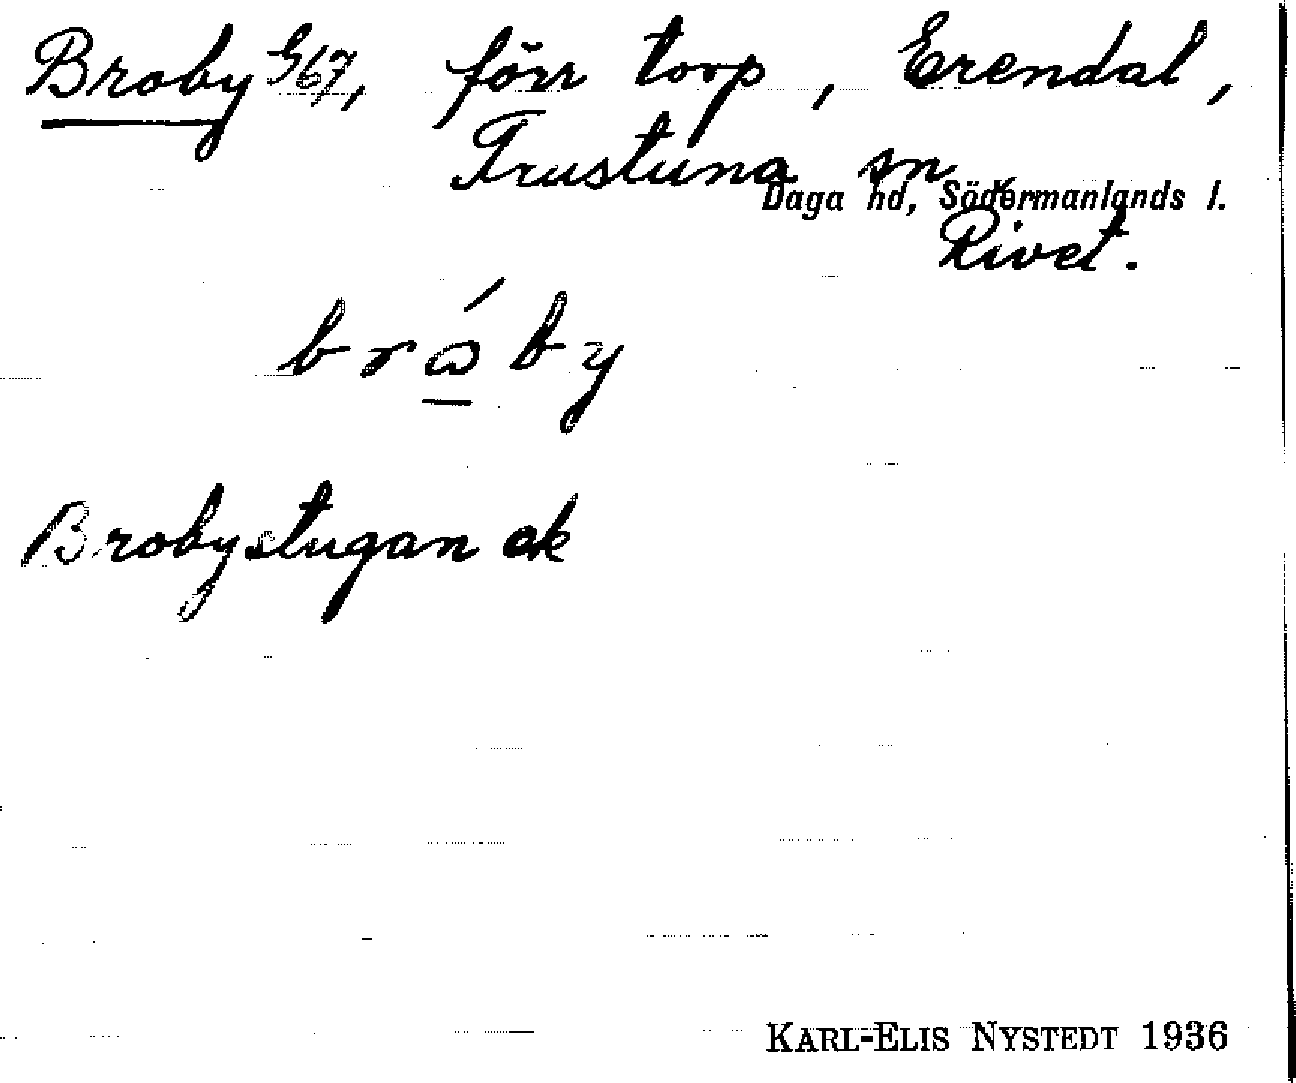 Broby G 67, förr torp, Erendal,
Frustuna sn
Daga hd, Södermanlands l.
Rivet.
bróby
Brobystugan ak
KARL-ELIS NYSTEDT 1936